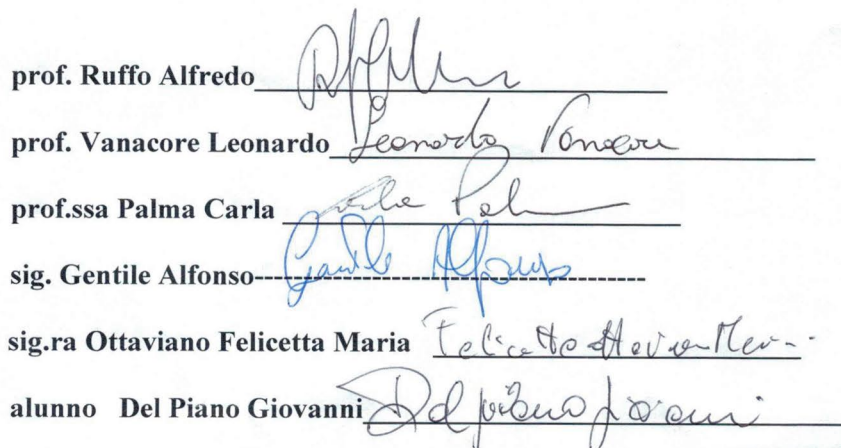 prof. Ruffo Alfredo
prof. Vanacore Leonardo Leonardo Vanacore
prof.ssa Palma Carla
sig. Gentile Alfonso Gentile Alfonso
sig.ra Ottaviano Felicetta Maria
alunno Del Piano Giovanni Del Piano Giovanni